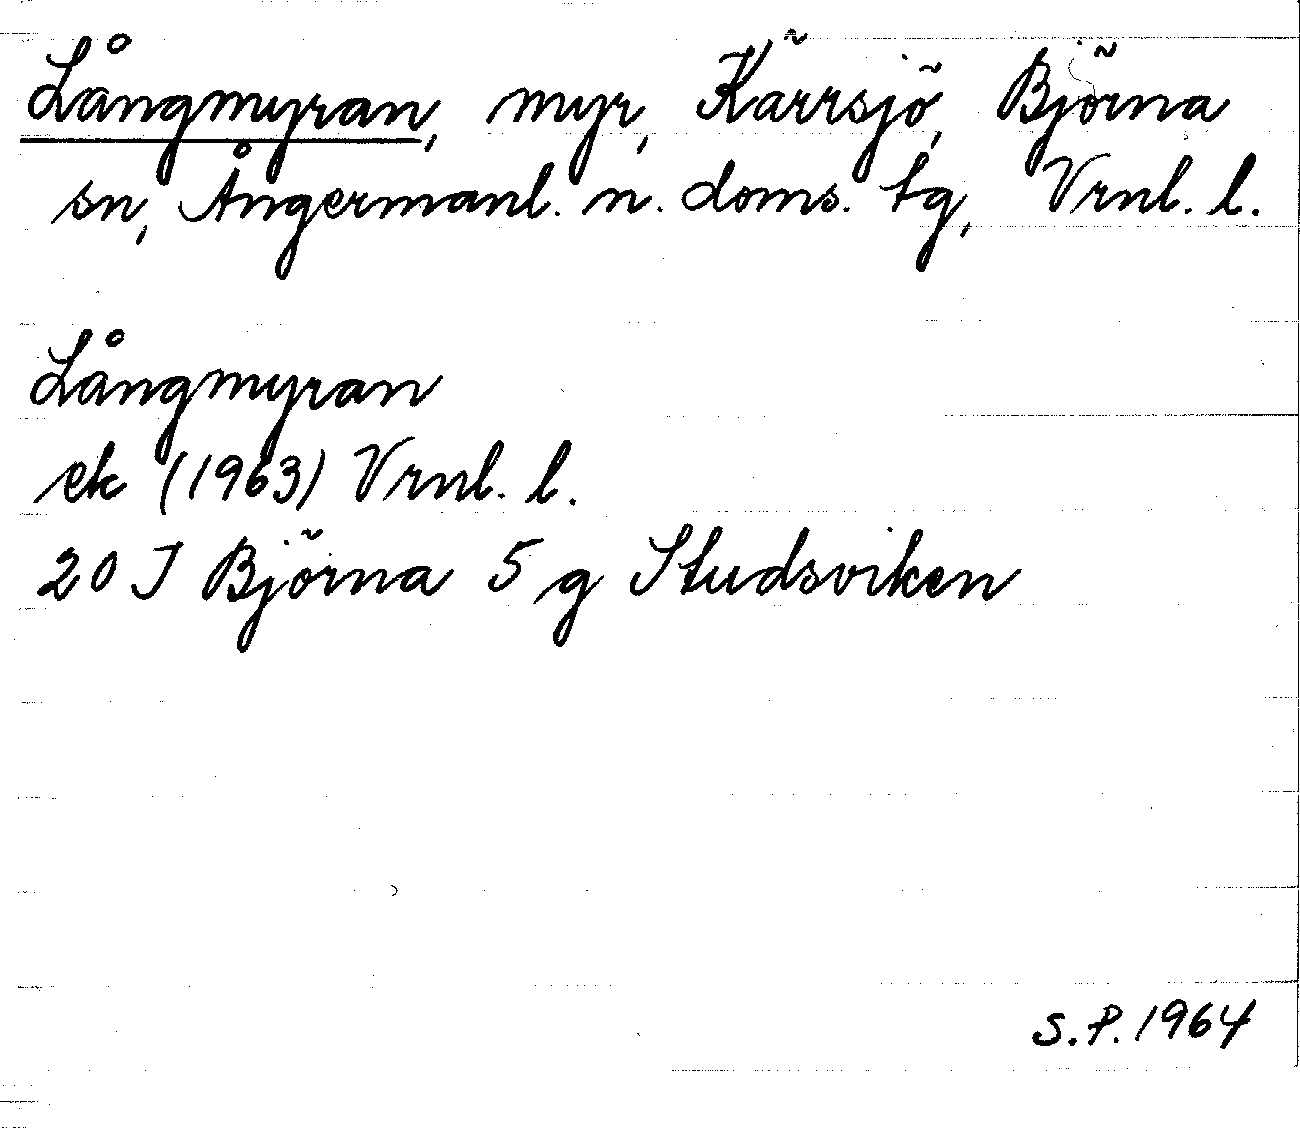 Långmyran, myr, Kärrsjö, Björna
sn, Ångermanl. n. doms. tg, Vrnl. l.
Långmyran
ek (1963) Vrnl. l.
20 J Björna 5 g Studsviken
S.P. 1964